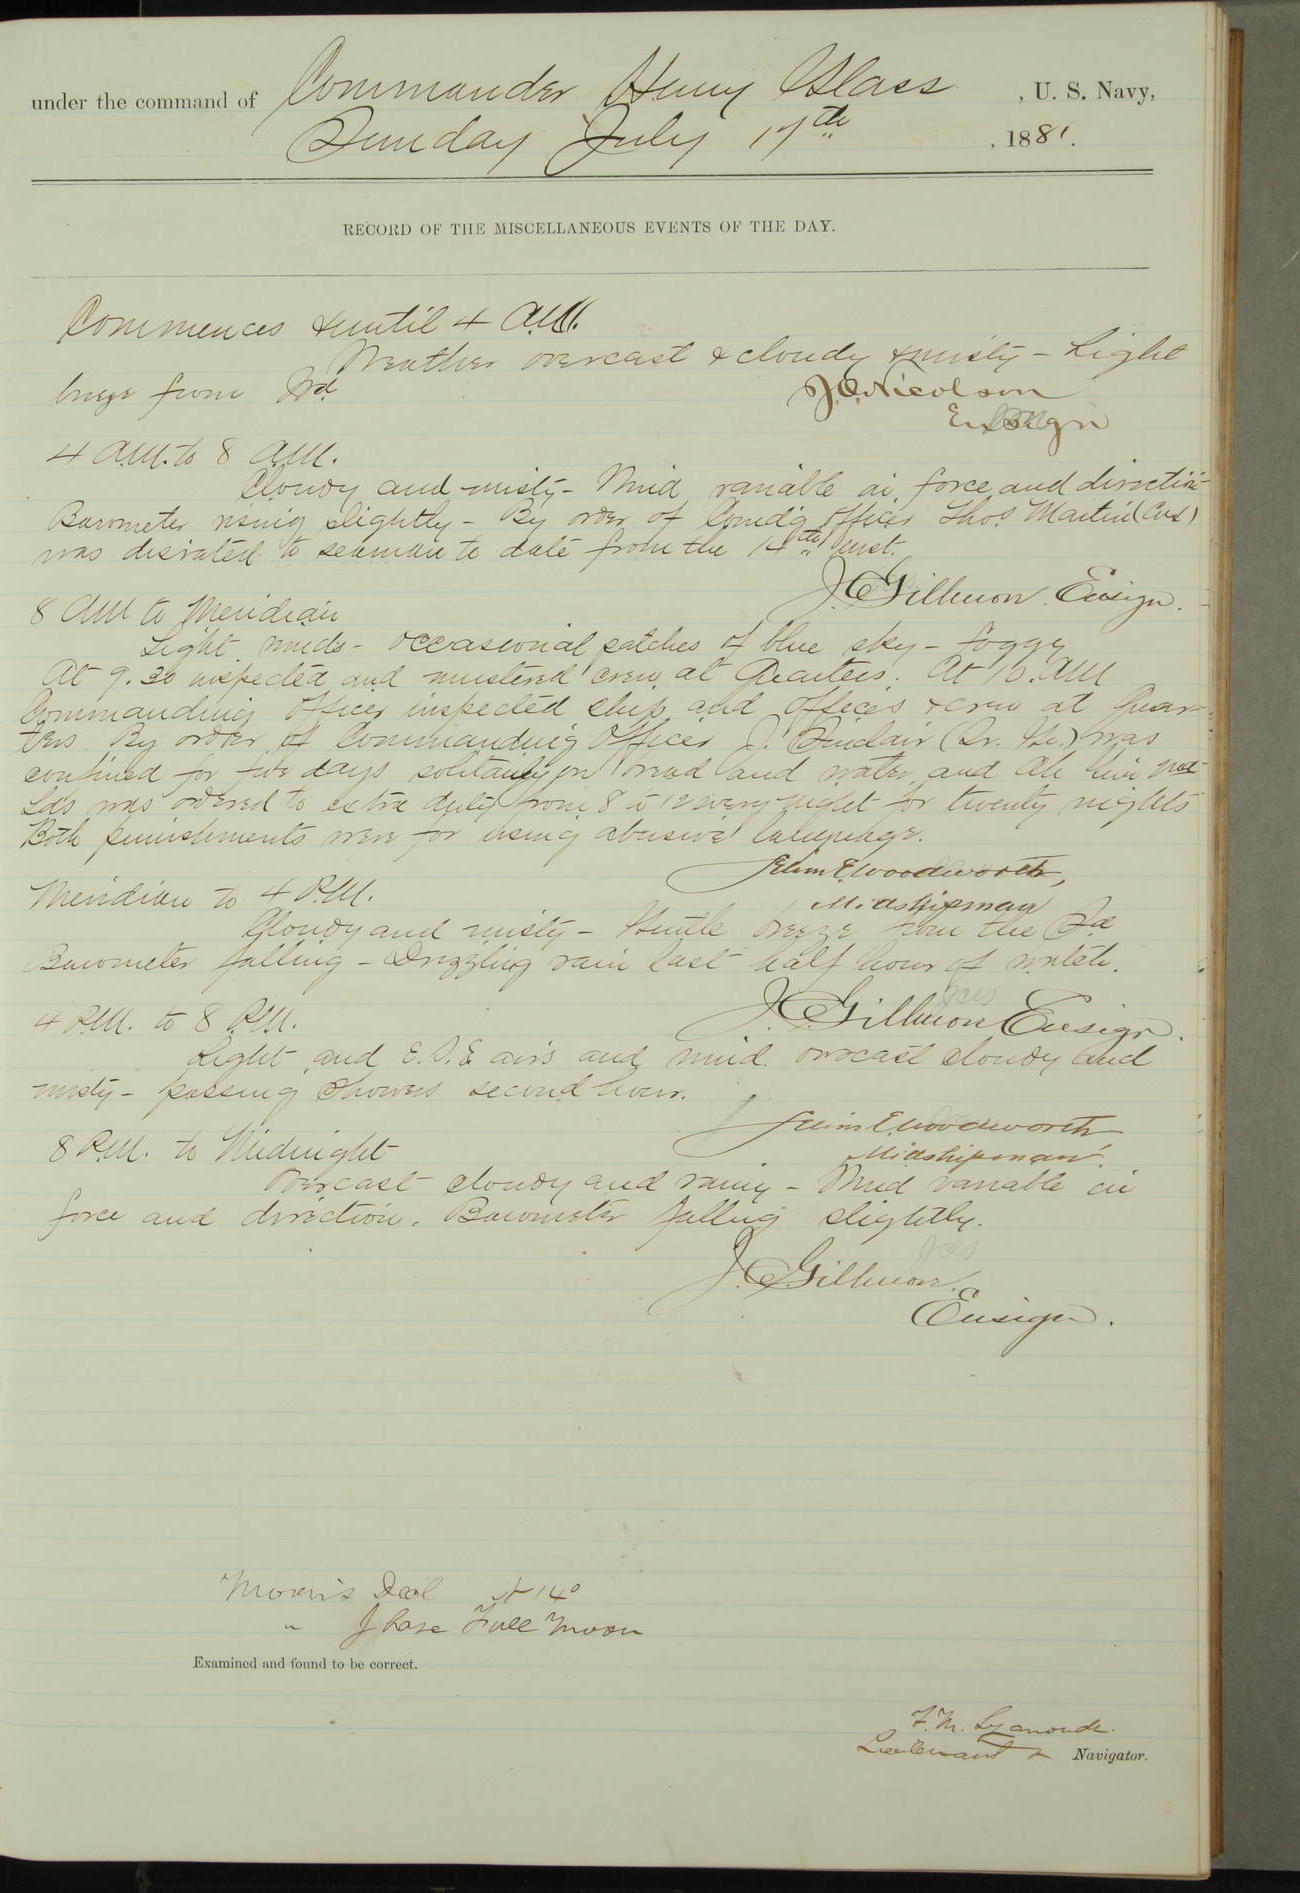 under the command of Commander Henry Glass , U. S. Navy,
Sunday July 17th , 1881.
RECORD OF THE MISCELLANEOUS EVENTS OF THE DAY.
Commences & until 4 A.M.
Weather overcast & cloudy & misty - Light
breeze from Wd.
J.O. Nicolson
Ensign
4 A.M. to 8 A.M.
Cloudy and misty - Wind variable in force and direction
Barometer rising slightly - By order of Comd'g Officer Thos. Martin (Cox)
was disrated to seaman to date from the 14th inst.
J.C. Gillmor Ensign.
8 AM to Meridian
Light winds - occasional patches of blue sky - foggy
At 9.30 inspected and mustered crew at Quarters. At 10. AM
Commanding Officer inspected ship and officers & crew at Quar-
ters. By order of Commanding Officer J. Sinclair was
confined for five days solitary on bread and water and Ah
Lds was ordered to extra duty from 8 to 12 every night for twenty nights
Both punishments were for using abusive language.
Selim E. Woodworth,
Midshipman
Meridian to 4 P.M.
Cloudy and misty - Gentle breeze from the Sd
Barometer falling - Drizzling rain last half hour of watch.
J.C. Gillmor Ensign.
4 P.M. to 8 P.M.
Light and E.S.E airs and wind. overcast cloudy and
misty - passing showers second hour.
Selim E. Woodworth
Midshipman.
8 P.M. to Midnight
Overcast cloudy and rainy - Wind variable in
force and direction. Barometer falling slightly.
J.C. Gillmor
Ensign.
Moon's Decl N 14°
" Phase Full Moon
Examined and found to be correct.
F. M. Symonds.
Lieutenant & Navigator.